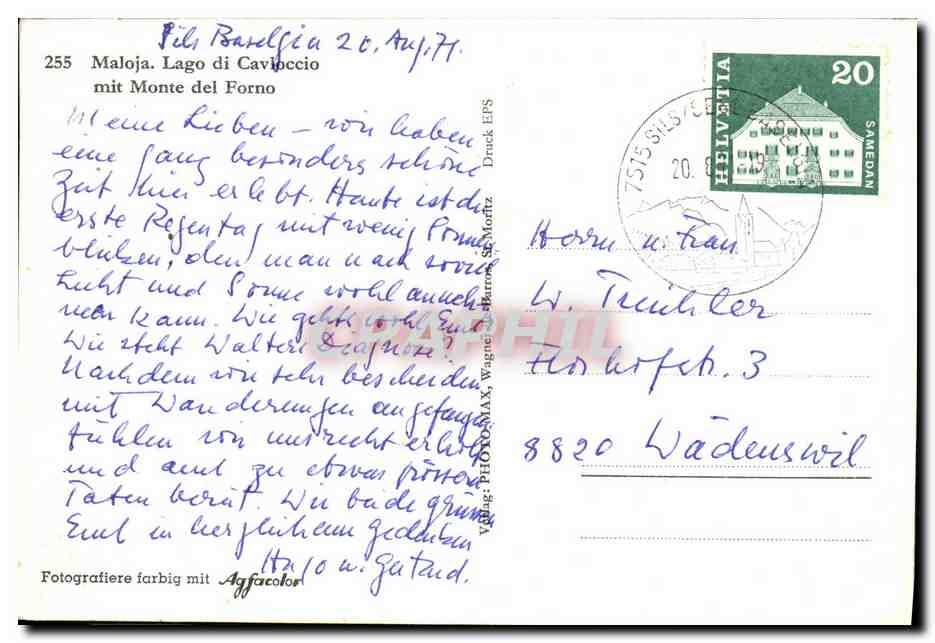 Sils Baselgia 20. Aug. 71.
255 Maloja. Lago di Cavloccio
mit Monte del Forno
Meine Lieben – wir haben
eine ganz besonders schöne
Zeit hier erlebt. Heute ist der
erste Regentag mit wenig Sonne
blicken, den man nach soviel
Licht und Sonne wohl anneh-
men kann. Wie gehts wohl Euch?
Wie steht Walters Diagnose?
Nachdem wir sehr bescheiden
mit Wanderungen angefangen
fühlen wir uns recht erholt
und auch zu etwas grössern
Taten bereit. Wir beide grüssen
Euch in herzlichem Gedenken
Hugo u. Gertrud.
Fotografiere farbig mit Agfacolor
Verlag: PHOTO-MAX, Wagner & Barros, St. Moritz Druck EPS
GRAPHIL
7515 SILS/SEGL
20. 8.
HELVETIA
20
SAMEDAN
Herrn u. Frau
W. Treichler
Florhofstr. 3
8820 Wädenswil